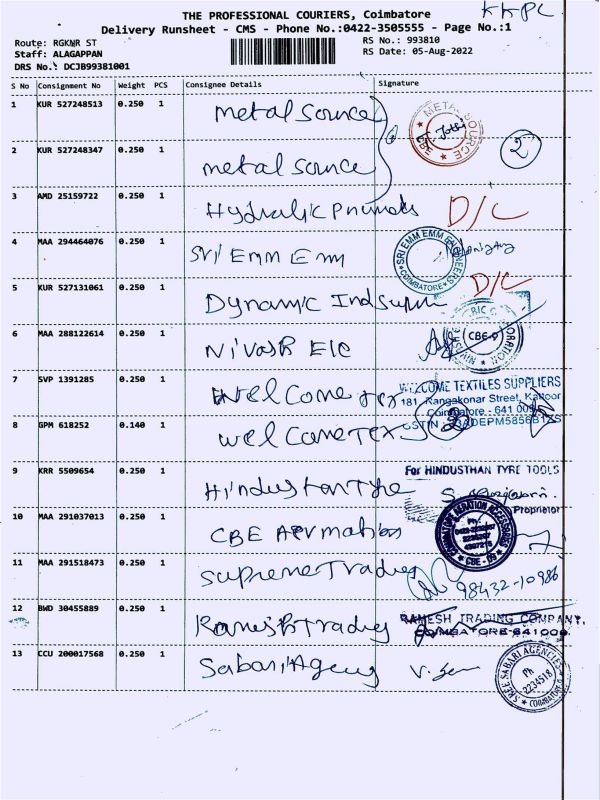 KKPC
THE PROFESSIONAL COURIERS, Coimbatore
Delivery Runsheet - CMS - Phone No.:0422-3505555 - Page No.:1
Route: RGKNR ST
RS No.: 993810
Staff: ALAGAPPAN
RS Date: 05-Aug-2022
DRS No.: DCJB99381001
S No Consignment No Weight PCS Consignee Details Signature
1 KUR 527248513 0.250 1 metal source
METAL SOURCE CBE
2 KUR 527248347 0.250 1 metal source
2
3 AMD 25159722 0.250 1 D/C
4 MAA 294464076 0.250 1 Sri Emm Emm
SRI EMM EMM ENGINEERS COIMBATORE
5 KUR 527131061 0.250 1 Dynamic D/C
6 MAA 288122614 0.250 1 Nivasr Elc
CBE-9
7 SVP 1391285 0.250 1 Welcome Tex
WELCOME TEXTILES SUPPLIERS
181, Rangakonar Street, Kattoor
Coimbatore - 641 009
8 GPM 618252 0.140 1 Welcome Tex 2
9 KRR 5509654 0.250 1 Hindusthan Tyre
For HINDUSTHAN TYRE TOOLS
Proprietor
10 MAA 291037013 0.250 1 CBE
COIMBATORE AERATION ACCESSORIES CBE - 09
11 MAA 291518473 0.250 1 Supreme Trading
98432-10986
12 BWD 30455889 0.250 1 Ramesh Trading
RAMESH TRADING COMPANY,
COIMBATORE-641009.
13 CCU 200017568 0.250 1 Sabari Agency
SREE SABARI AGENCIES Ph 2234518 COIMBATORE